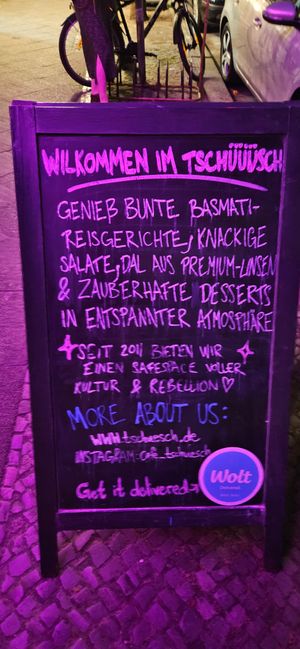 WILKOMMEN IM TSCHÜÜÜSCH
GENIEß BUNTE BASMATI-
REISGERICHTE, KNACKIGE
SALATE, DAL AUS PREMIUM-LINSEN
& ZAUBERHAFTE DESSERTS
IN ENTSPANNTER ATMOSPHÄRE
SEIT 2011 BIETEN WIR
EINEN SAFESPACE VOLLER
KULTUR & REBELLION
MORE ABOUT US:
www.tschuesch.de
INSTAGRAM: cafe_tschuesch
Get it delivered
Wolt